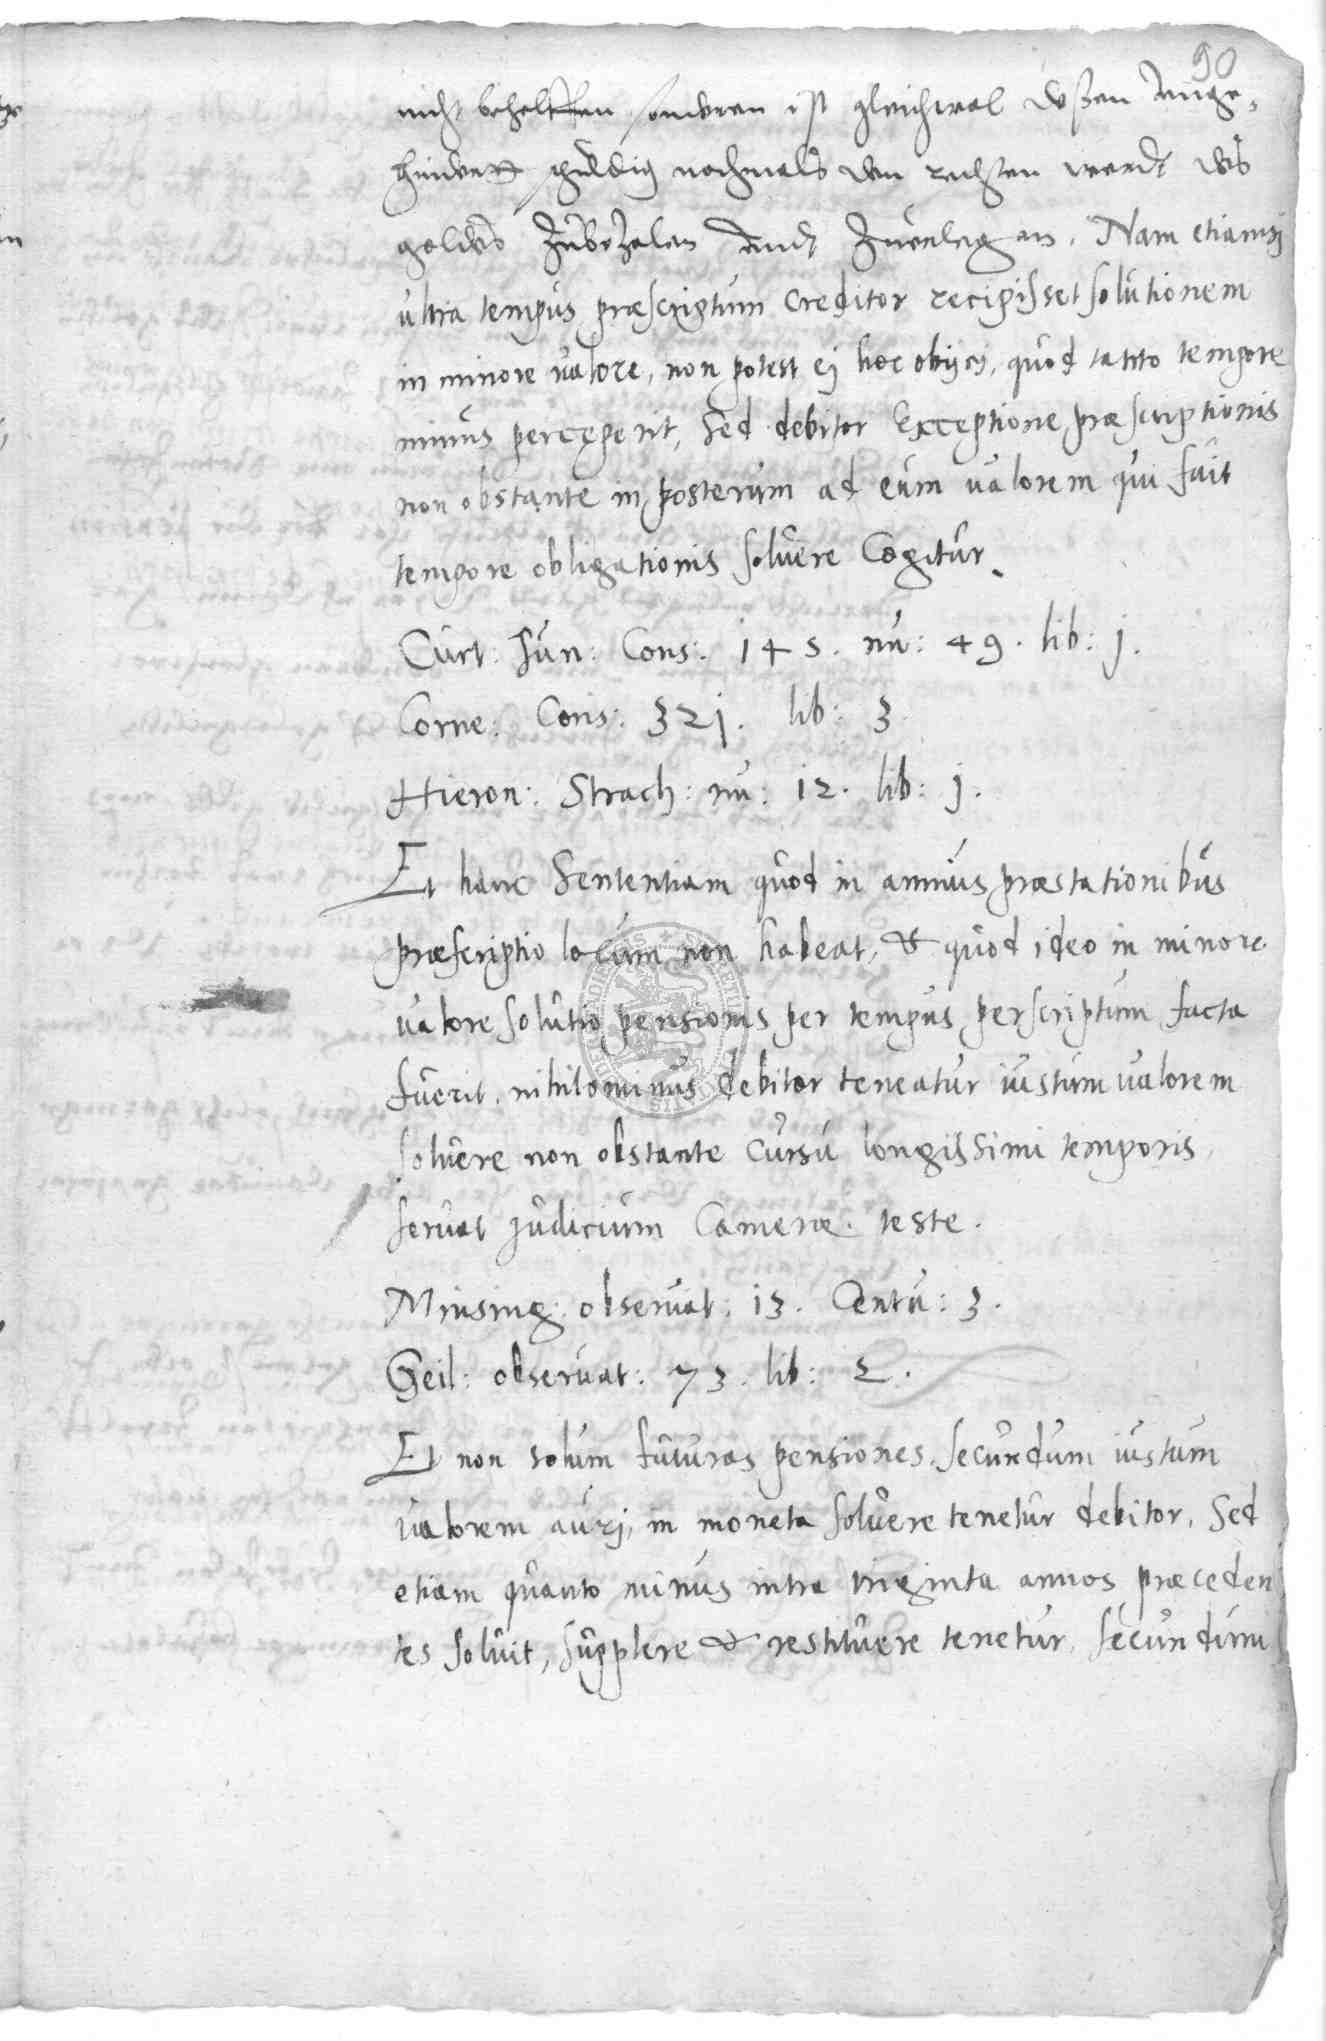 90
nicht behelffen sonderen ist gleichwol deßen vnuge-
hindertt schuldig nochmals den rechten werdt des
goldes zubezalen vndt zuerleg en. Nam etiamsj
ultra tempus præscriptum creditor recipisset solutionem
in minore valore, non potest ej hoc obijcj, quod tanto tempore
minus perceperit, Sed debitor Exceptione præscriptionis
non obstante in posterum ad eum valorem qui fuit
tempore obligationis solvere Cogitur.
Curt: Jun: Cons: 145. nu: 49. lib: j.
Corne: Cons: 32j. lib: 3
Hieron: Strach: nu: 12. lib: j.
Et hanc Sententiam quod in annuis præstationibus
præscriptio locum non habeat, & quod ideo in minore
valore solutio pensionis per tempus perscriptum facta
fuerit, nihilominus debitor teneatur iustum valorem
solvere non obstante cursu longissimi temporis,
servat judicium Cameræ. teste.
Minsing: observat: 13. Centu: 3.
Geil: observat: 73. lib: 2.
Et non solum futuras pensiones secundum iustum
valorem aurj, in moneta solvere tenetur debitor, Sed
etiam quanto minus intra triginta annos præceden
tes solvit, supplere & restituere tenetur, secundum